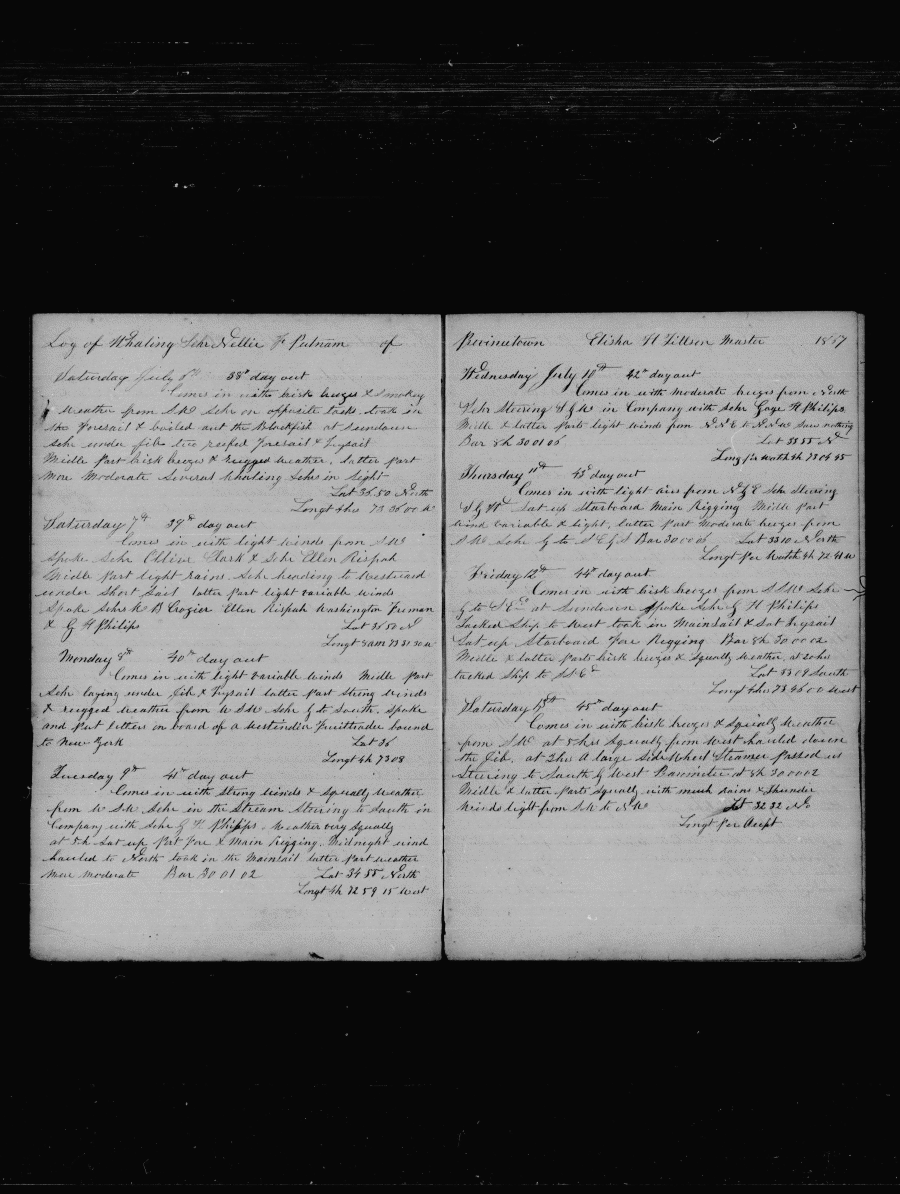 Log of Whaling Schr Nellie F Putnam of
Saturday July 6th 38th day out
Comes in with brisk breezes & smokey
weather from SW Schr on opposite tacks took in
the Foresail & boiled out the Blackfish at sundown
Schr under jib two reefed Foresail & Trysail
Middle Part brisk breezes & rugged weather, latter part
more moderate Several Whaling Schrs in Sight
Lat 36.50 North
Longt 4hrs 73 36 00 W
Saturday 7th 39th day out
Comes in with light winds from SW
Spoke Schr Clark & Schr Ellen Rispah
Middle Part light rains Schr heading to Westward
under Short Sail latter part light variable winds
Spoke Schrs R B Cogier Ellen Rispah Washington Freman
& G H Philips Lat 36 50 N
Longt 8am 73 31 30 W
Monday 8th 40th day out
Comes in with light variable winds Middle Part
Schr laying under Jib & Trysail latter part Strong winds
& rugged weather from WSW Schr G to South, Spoke
and Put letters on board of a Westindia Fruittrader bound
to New York Lat 36
Longt 4h 73 08
Tuesday 9th 41st day out
Comes in with Strong winds & Squally weather
from W SW Schr in the Stream Steering to South in
Company with Schr G H Philips, Weather very Squally
at 5h Sat up Port Fore & Main Rigging, Midnight wind
hauled to North took in the Mainsail latter Part weather
more moderate Bar 30 01 02 Lat 34 55 North
Longt 4h 72 59 15 West
Provincetown Elisha H Tillson Master 1867
Wednesday July 10th 42nd day out
Comes in with moderate breezes from North
Schr Steering S G W in Company with Schr Gage H Philips
Middle & latter parts light winds from N N E to N N W Saw nothing
Bar 8h 30 01 06 Lat 33 55 N
Long per watch 4h 73 04 45
Thursday 11th 43d day out
Comes in with light airs from N G E Schr Steering
S G W Sat up Starboard Main Rigging Middle Part
wind variable & light, latter Part Moderate breezes from
SW Schr G to S E G S Bar 30 00 06 Lat 33 10 North
Longt Per Watch 4h 72 41 W
Friday 12th 44th day out
Comes in with brisk breezes from S SW Schr
G to S Ed at Sundown Spoke Schr G H Philips
Tacked Ship to West took in Mainsail & Sat Trysail
Sat up Starboard Fore Rigging Bar 8h 30 00 02
Middle & latter Parts brisk breezes & Squally weather, at 20hrs
tacked Ship to SSEd Lat 33 09 South
Longt 4hrs 73 46 00 West
Saturday 13th 45th day out
Comes in with brisk breezes & Squally Weather
from SW at 5hrs Squally from West hauled down
the Jib, at 2hrs A large Side Wheel Steamer Passed us
Steering to South G West Barometer at 8h 30 00 02
Middle & latter Parts Squally with much rains & thunder
Winds light from SW to NW Lat 32 32 No
Longt Per Accpt